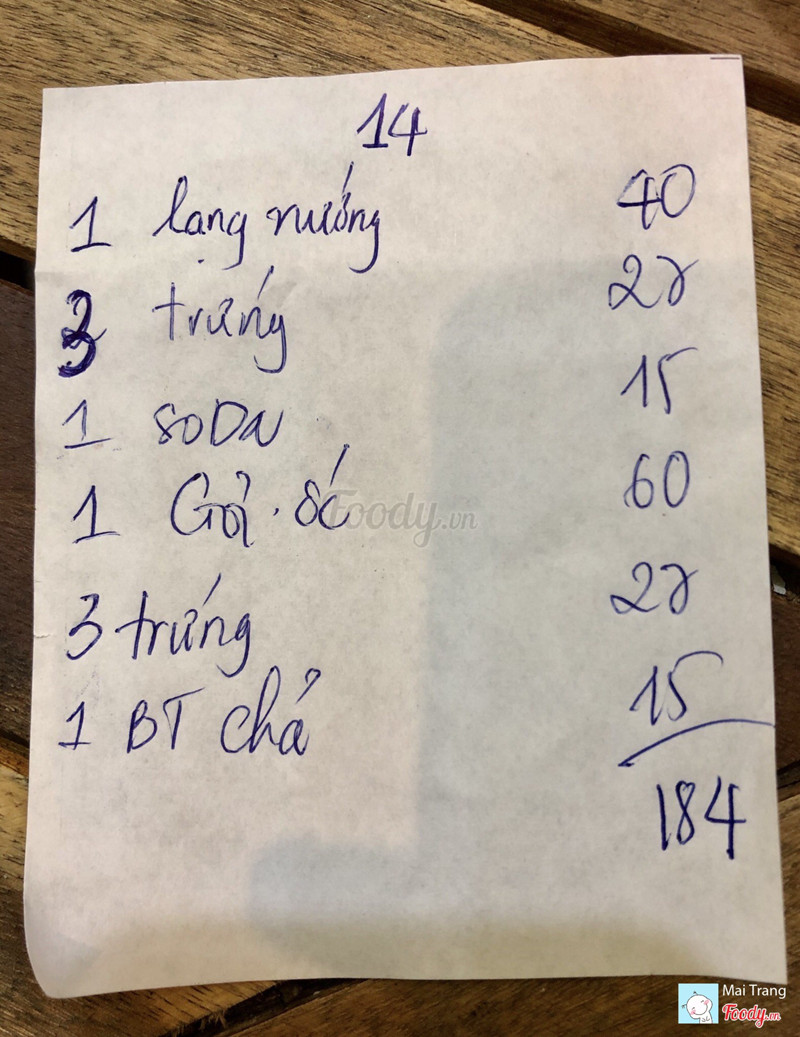 14
1 lạng nướng 40
3 trứng 27
1 SODA 15
1 Gỏi ốc 60
3 trứng 27
1 BT chả 15
184
Foody.vn
Mai Trang
Foody.vn